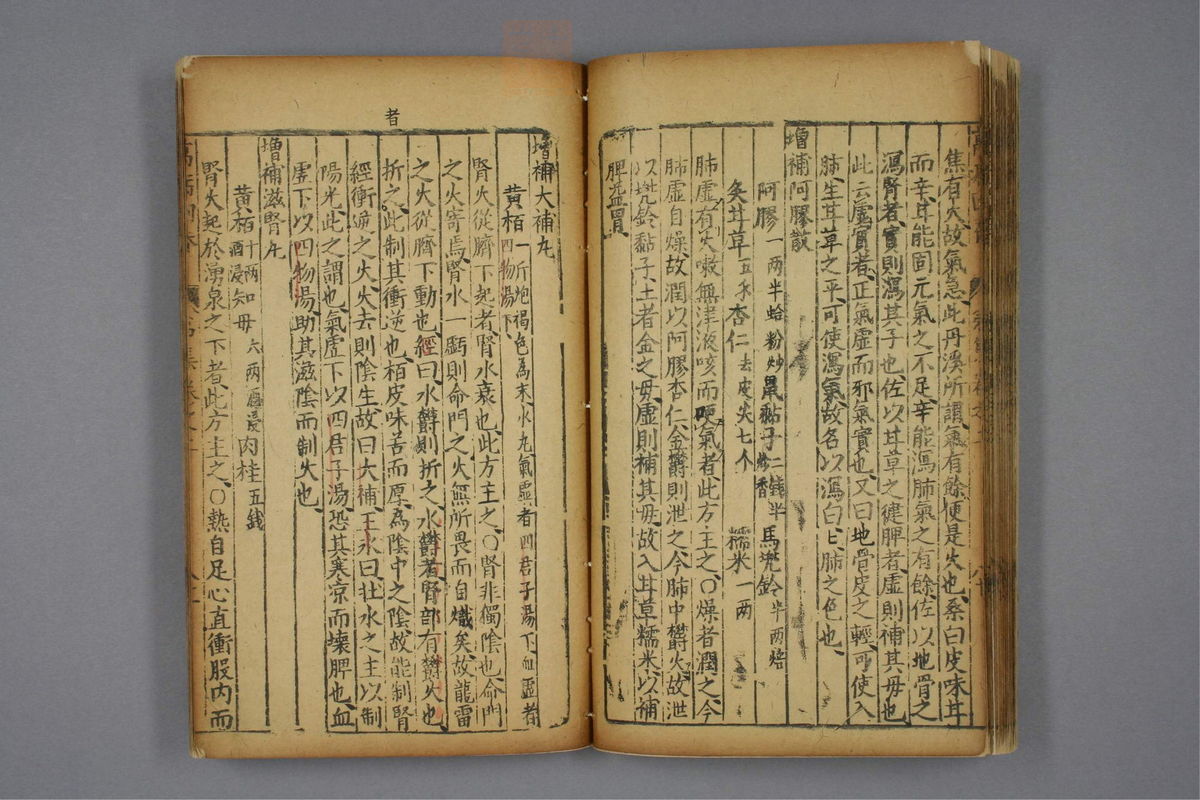 焦有火故氣急此丹溪所謂氣有餘便是火也桑白皮味甘
而辛甘能固元氣之不足辛能瀉肺氣之有餘佐以地骨之
瀉腎者實則瀉其子也佐以甘草之健脾者虛則補其母也
此云虛實者正氣虛而邪氣實也又曰地骨皮之輕可使入
肺生甘草之平可使瀉氣故名以瀉白白肺之色也
增補阿膠散
阿膠一兩半蛤粉炒鼠黏子二錢半炒香馬兠鈴半兩焙
炙甘草五錢杏仁去皮尖七个糯米一兩
肺虛有火嗽無津液咳而哽氣者此方主之○燥者潤之今
肺虛自燥故潤以阿膠杏仁金欝則泄之今肺中欝火故泄
以兠鈴黏子土者金之母虛則補其母故入甘草糯米以補
脾益胃
者
增補大補丸
黃栢一斤炮褐色為末水丸氣虛者四君子湯下血虛者
四物湯下
腎火從臍下起者腎水衰也此方主之○腎非獨陰也命門
之火寄焉腎水一虧則命門之火無所畏而自熾矣故龍雷
之火從臍下動也經曰水欝則折之水欝者腎部有欝火也
折之此制其衝逆也栢皮味苦而厚為陰中之陰故能制腎
經衝逆之火火去則陰生故曰大補王氷曰壮水之主以制
陽光此之謂也氣虛下以四君子湯恐其寒凉而壞脾也血
虛下以四物湯助其滋陰而制火也
增補滋腎丸
黃栢十兩酒浸知母六兩酒浸肉桂五錢
腎火起於湧泉之下者此方主之○熱自足心直衝股内而